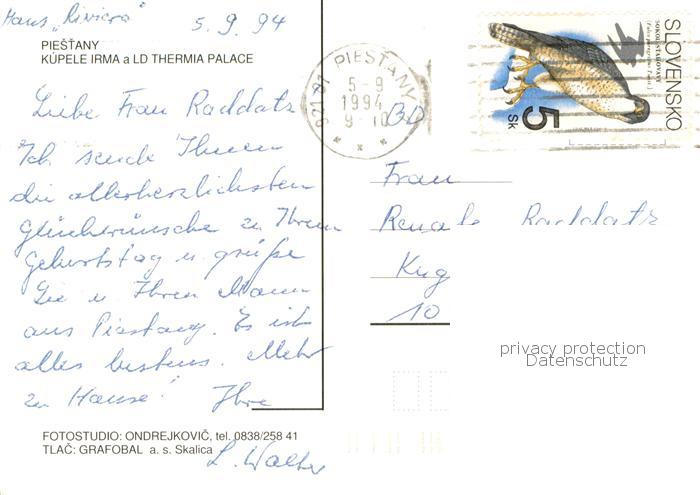 Haus "Riviera" 5.9.94
PIEŠŤANY
KÚPELE IRMA a LD THERMIA PALACE
Liebe Frau Raddatz
Ich sende Ihnen
die allerherzlichsten
Glückwünsche zu Ihrem
Geburtstag u. grüße
Sie u. Ihren Mann
aus Piestany. Es ist
alles bestens. Mehr
zu Hause! Ihre
L. Walter
FOTOSTUDIO: ONDREJKOVIČ, tel. 0838/258 41
TLAČ: GRAFOBAL a. s. Skalica
921 01 PIEŠŤANY
5-9
1994
9-10
SLOVENSKO
5 Sk
Frau
Renate Raddatz
10
privacy protection
Datenschutz